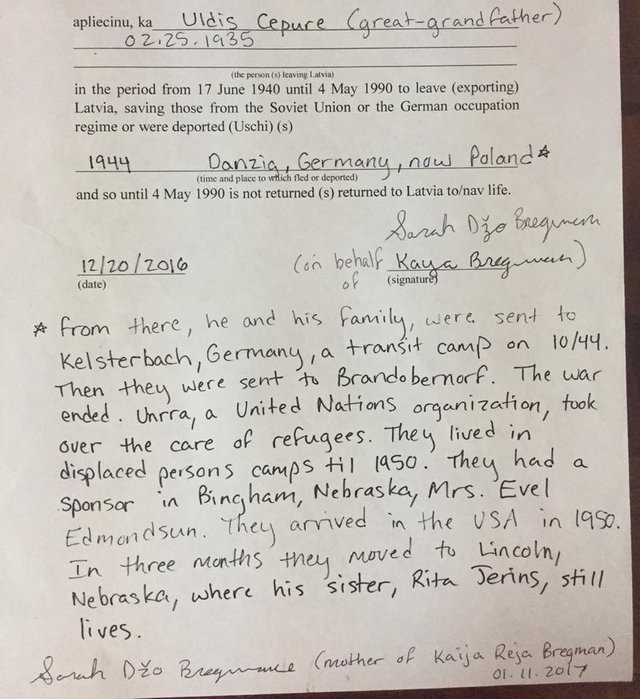 apliecinu, ka Uldis Cepure (great-grandfather)
02.25.1935
(the person (s) leaving Latvia)
in the period from 17 June 1940 until 4 May 1990 to leave (exporting)
Latvia, saving those from the Soviet Union or the German occupation
regime or were deported (Uschi) (s)
1944 Danzig, Germany, now Poland*
(time and place to which fled or deported)
and so until 4 May 1990 is not returned (s) returned to Latvia to/nav life.
Sarah Džo Bregman
12/20/2016 (on behalf of Kaya Bregman)
(date) (signature)
* From there, he and his family, were sent to
Kelsterbach, Germany, a transit camp on 10/44.
Then they were sent to Brandobernorf. The war
ended. Unrra, a United Nations organization, took
over the care of refugees. They lived in
displaced persons camps til 1950. They had a
sponsor in Bingham, Nebraska, Mrs. Evel
Edmondsun. They arrived in the USA in 1950.
In three months they moved to Lincoln,
Nebraska, where his sister, Rita Jerins, still
lives.
Sarah Džo (mother of Kaija Reja Bregman)
01.11.2017